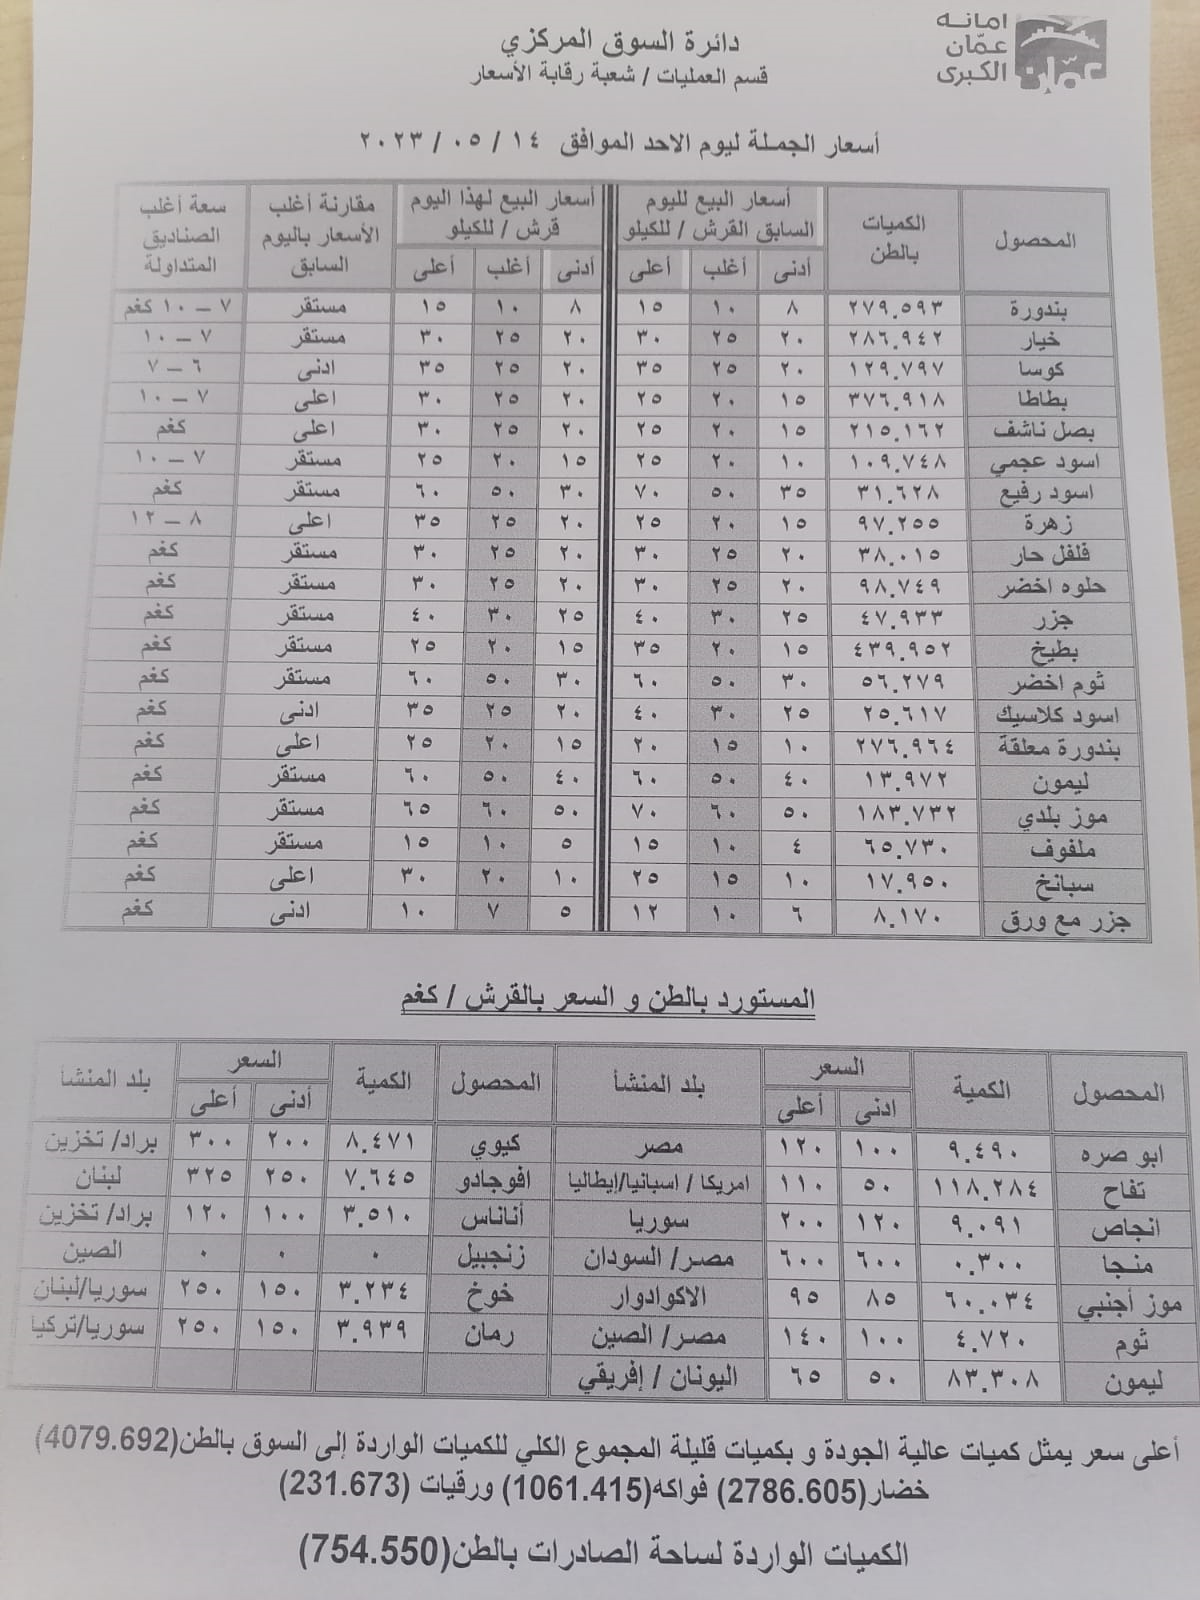 امانة
عمّان
الكبرى
عمّان
دائرة السوق المركزي
قسم العمليات / شعبة رقابة الأسعار
أسعار الجملة ليوم الاحد الموافق ١٤ / ٠٥ / ٢٠٢٣
المحصول | الكميات بالطن | أسعار البيع لليوم السابق القرش / للكيلو | أسعار البيع لهذا اليوم قرش / للكيلو | مقارنة أغلب الأسعار باليوم السابق | سعة أغلب الصناديق المتداولة
أدنى | أغلب | أعلى | أدنى | أغلب | أعلى
بندورة | ٢٧٩.٥٩٣ | ٨ | ١٠ | ١٥ | ٨ | ١٠ | ١٥ | مستقر | ٧ – ١٠ كغم
خيار | ٢٨٦.٩٤٢ | ٢٠ | ٢٥ | ٣٠ | ٢٠ | ٢٥ | ٣٠ | مستقر | ٧ – ١٠
كوسا | ١٢٩.٧٩٧ | ٢٠ | ٢٥ | ٣٥ | ٢٠ | ٢٥ | ٣٥ | ادنى | ٦ – ٧
بطاطا | ٣٧٦.٩١٨ | ١٥ | ٢٠ | ٢٥ | ٢٠ | ٢٥ | ٣٠ | اعلى | ٧ – ١٠
بصل ناشف | ٢١٥.١٦٢ | ١٥ | ٢٠ | ٢٥ | ٢٠ | ٢٥ | ٣٠ | اعلى | كغم
اسود عجمي | ١٠٩.٧٤٨ | ١٠ | ٢٠ | ٢٥ | ١٥ | ٢٠ | ٢٥ | مستقر | ٧ – ١٠
اسود رفيع | ٣١.٦٢٨ | ٣٥ | ٥٠ | ٧٠ | ٣٠ | ٥٠ | ٦٠ | مستقر | كغم
زهرة | ٩٧.٢٥٥ | ١٥ | ٢٠ | ٢٥ | ٢٠ | ٢٥ | ٣٥ | اعلى | ٨ – ١٢
فلفل حار | ٣٨.٠١٥ | ٢٠ | ٢٥ | ٣٠ | ٢٠ | ٢٥ | ٣٠ | مستقر | كغم
حلوه اخضر | ٩٨.٧٤٩ | ٢٠ | ٢٥ | ٣٠ | ٢٠ | ٢٥ | ٣٠ | مستقر | كغم
جزر | ٤٧.٩٣٣ | ٢٥ | ٣٠ | ٤٠ | ٢٥ | ٣٠ | ٤٠ | مستقر | كغم
بطيخ | ٤٣٩.٩٥٢ | ١٥ | ٢٠ | ٣٥ | ١٥ | ٢٠ | ٢٥ | مستقر | كغم
ثوم اخضر | ٥٦.٢٧٩ | ٣٠ | ٥٠ | ٦٠ | ٣٠ | ٥٠ | ٦٠ | مستقر | كغم
اسود كلاسيك | ٢٥.٦١٧ | ٢٥ | ٣٠ | ٤٠ | ٢٠ | ٢٥ | ٣٥ | ادنى | كغم
بندورة معلقة | ٢٧٦.٩٦٤ | ١٠ | ١٥ | ٢٠ | ١٥ | ٢٠ | ٢٥ | اعلى | كغم
ليمون | ١٣.٩٧٢ | ٤٠ | ٥٠ | ٦٠ | ٤٠ | ٥٠ | ٦٠ | مستقر | كغم
موز بلدي | ١٨٣.٧٣٢ | ٥٠ | ٦٠ | ٧٠ | ٥٠ | ٦٠ | ٦٥ | مستقر | كغم
ملفوف | ٦٥.٧٣٠ | ٤ | ١٠ | ١٥ | ٥ | ١٠ | ١٥ | مستقر | كغم
سبانخ | ١٧.٩٥٠ | ١٠ | ١٥ | ٢٥ | ١٠ | ٢٠ | ٣٠ | اعلى | كغم
جزر مع ورق | ٨.١٧٠ | ٦ | ١٠ | ١٢ | ٥ | ٧ | ١٠ | ادنى | كغم
المستورد بالطن و السعر بالقرش / كغم
المحصول | الكمية | السعر | بلد المنشأ | المحصول | الكمية | السعر | بلد المنشأ
ادنى | أعلى | أدنى | أعلى
ابو صره | ٩.٤٩٠ | ١٠٠ | ١٢٠ | مصر | كيوي | ٨.٤٧١ | ٢٠٠ | ٣٠٠ | براد/ تخزين
تفاح | ١١٨.٢٨٤ | ٥٠ | ١١٠ | امريكا / اسبانيا/إيطاليا | افوجادو | ٧.٦٤٥ | ٢٥٠ | ٣٢٥ | لبنان
انجاص | ٩.٠٩١ | ١٢٠ | ٢٠٠ | سوريا | أناناس | ٣.٥١٠ | ١٠٠ | ١٢٠ | براد/ تخزين
منجا | ٠.٣٠٠ | ٦٠٠ | ٦٠٠ | مصر/ السودان | زنجبيل | ٠ | ٠ | ٠ | الصين
موز أجنبي | ٦٠.٠٣٤ | ٨٥ | ٩٥ | الاكوادوار | خوخ | ٣.٢٣٤ | ١٥٠ | ٢٥٠ | سوريا/لبنان
ثوم | ٤.٧٢٠ | ١٠٠ | ١٤٠ | مصر/ الصين | رمان | ٣.٩٣٩ | ١٥٠ | ٢٥٠ | سوريا/تركيا
ليمون | ٨٣.٣٠٨ | ٥٠ | ٦٥ | اليونان / إفريقي
أعلى سعر يمثل كميات عالية الجودة و بكميات قليلة المجموع الكلي للكميات الواردة إلى السوق بالطن(4079.692)
خضار(2786.605) فواكه(1061.415) ورقيات (231.673)
الكميات الواردة لساحة الصادرات بالطن(754.550)